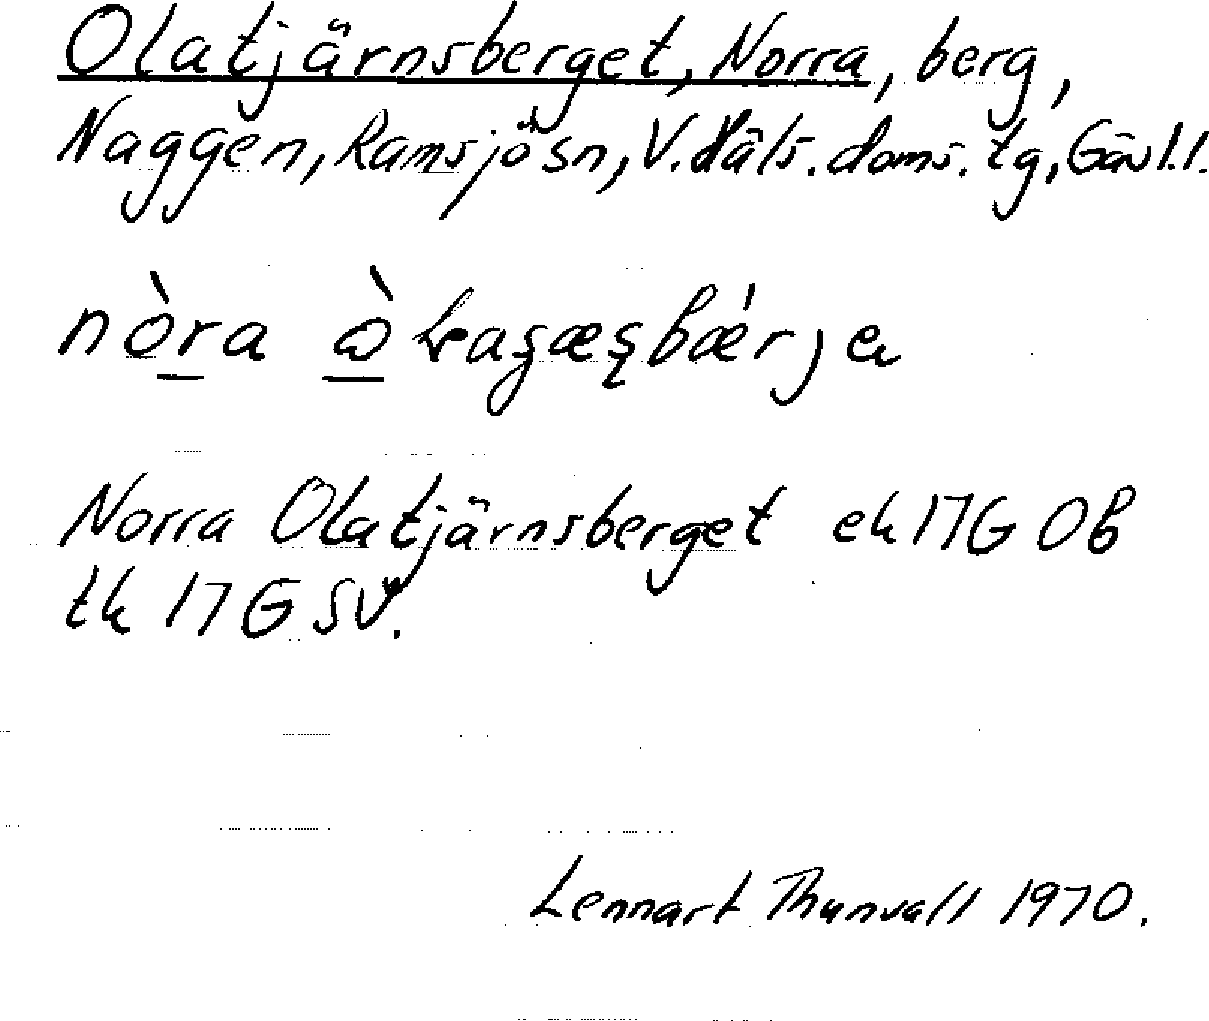 Olatjärnsberget, Norra, berg,
Naggen, Ramsjösn, V. Häls. doms. tg, Gävl.l.
nòra
Norra Olatjärnsberget ek 17G OB
tk 17G SV.
Lennart Thunvall 1970.